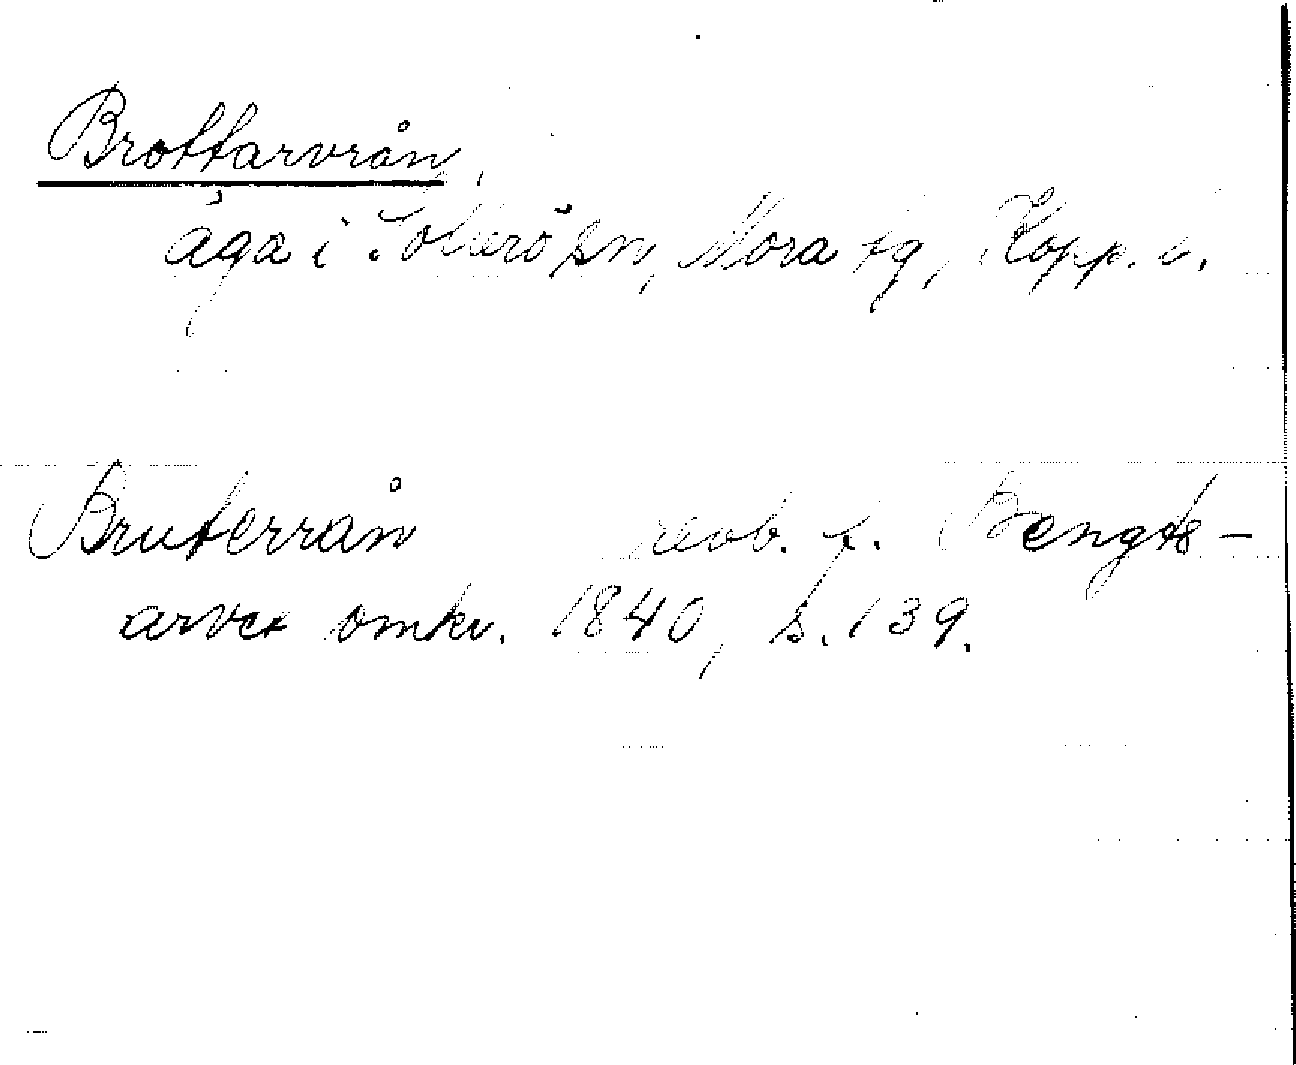 Brottarvrån,
äga i Sollerö sn, Mora tg, Kopp. l.
Bruterrån revb. f. Bengts-
arvet omkr. 1840, s. 139.